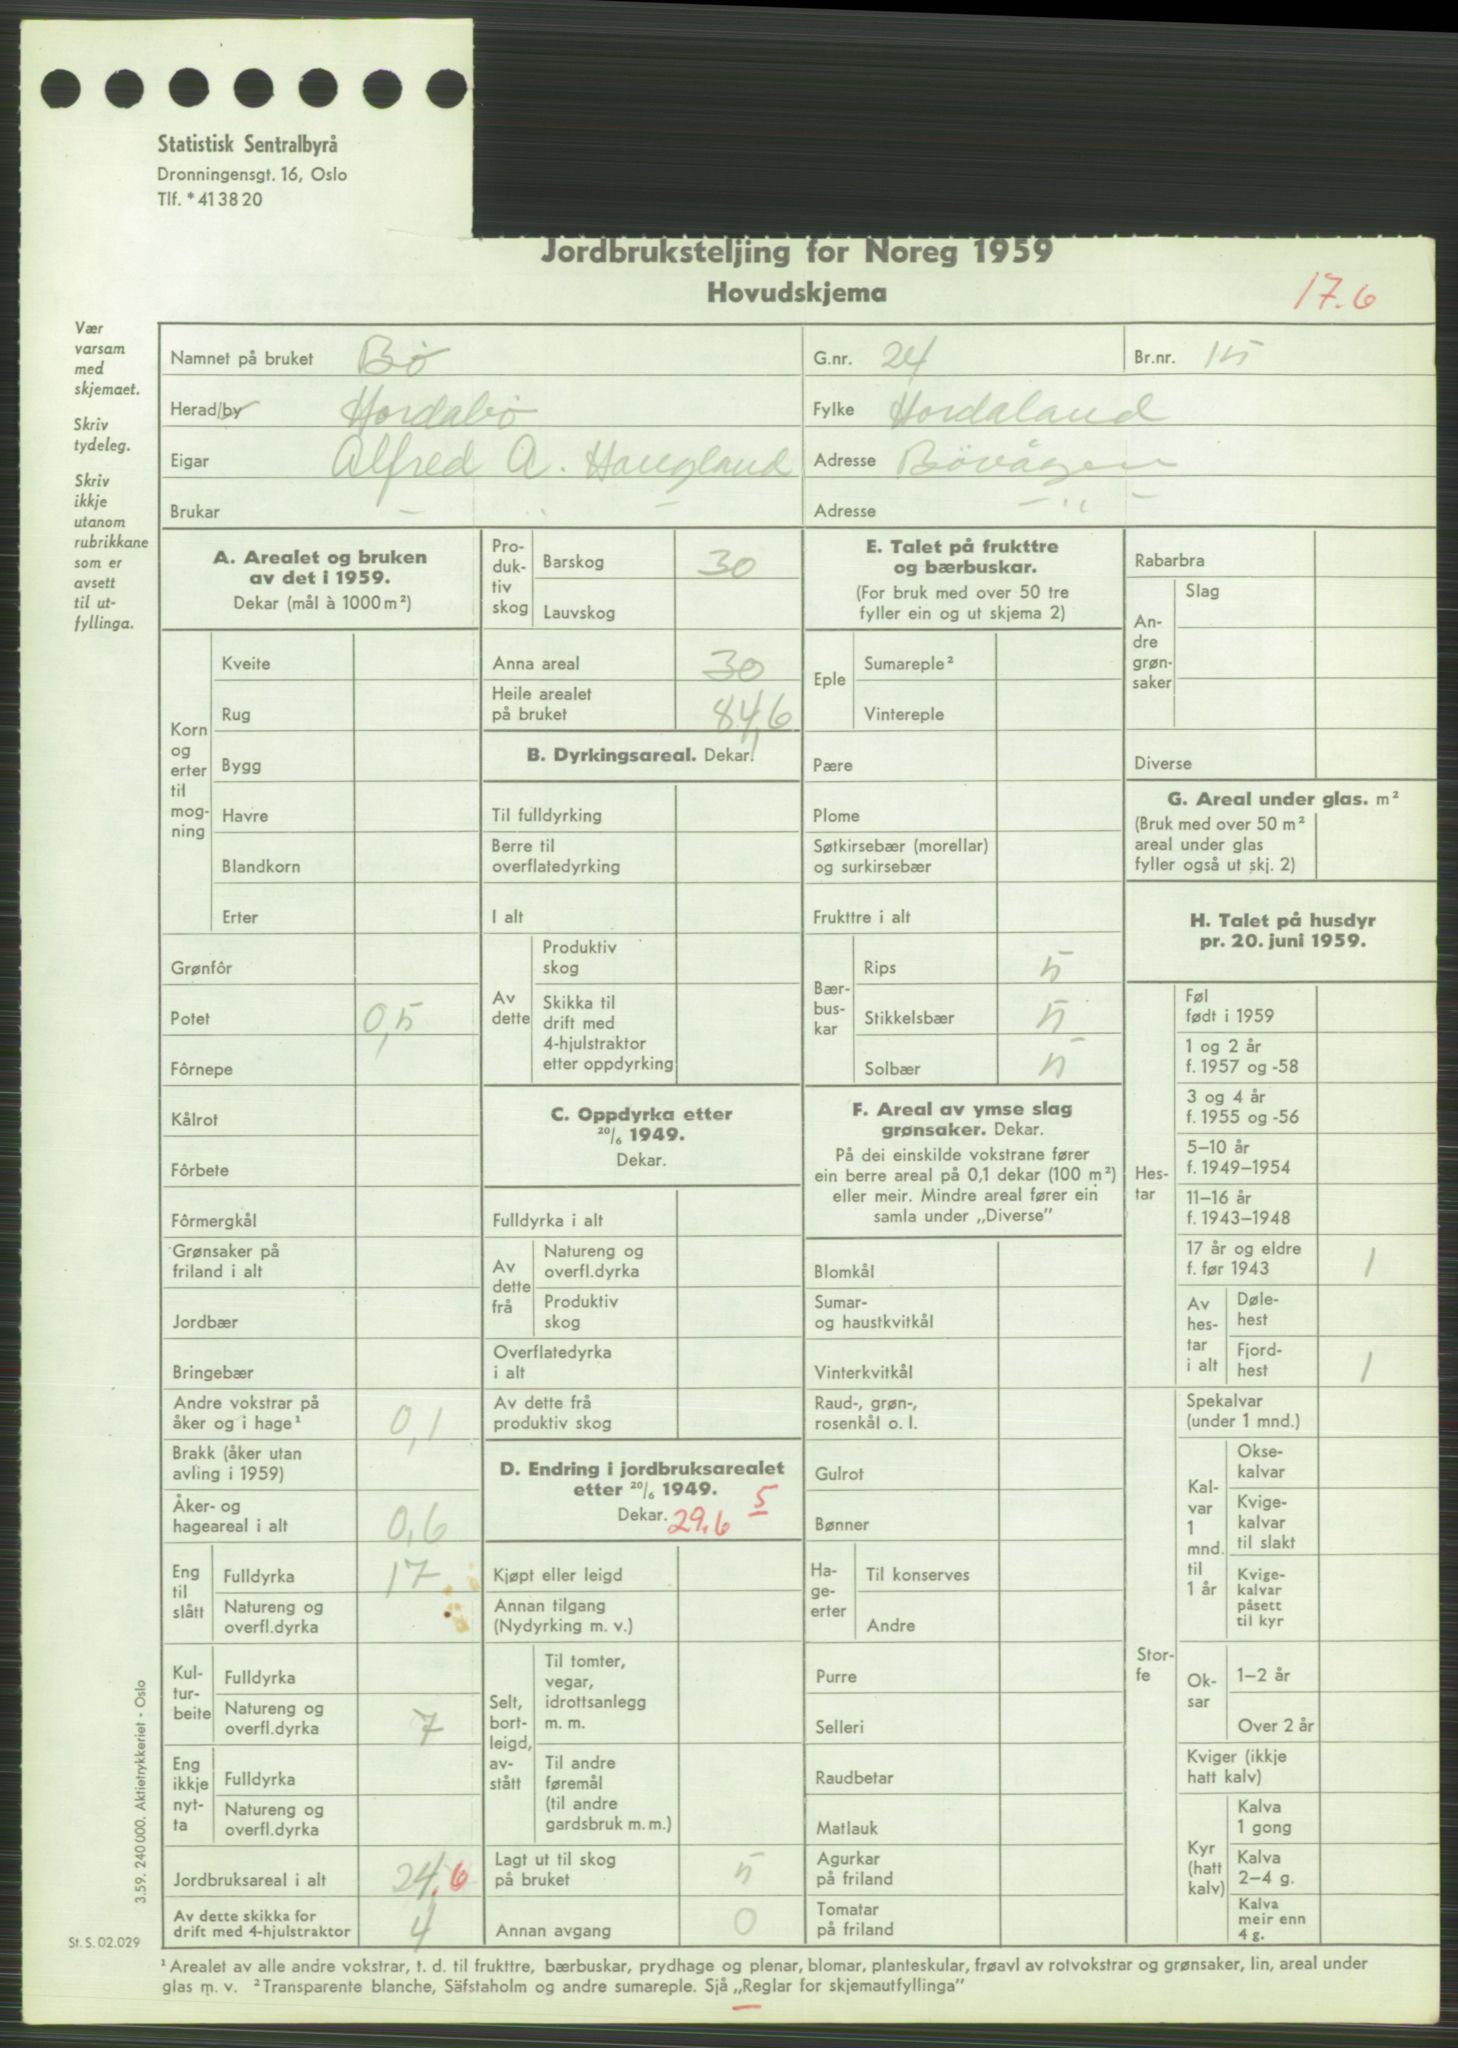 Statistisk Sentralbyrå
Dronningensgt. 16, Oslo
Tlf. *41 38 20
Jordbruksteljing for Noreg 1959
Hovudskjema
17.6
Vær
varsam
med
skjemaet.
Skriv
tydeleg.
Skriv
ikkje
utanom
rubrikkane
som er
avsett
til ut-
fyllinga.
Namnet på bruket Bø G.nr. 24 Br.nr. 15
Herad/by Hordabø Fylke Hordaland
Eigar Alfred A. Haugland Adresse Bøvågen
Brukar – " – Adresse – " –
A. Arealet og bruken
av det i 1959.
Dekar (mål à 1000 m²)
Korn
og
erter
til
mog-
ning
Kveite
Rug
Bygg
Havre
Blandkorn
Erter
Grønfôr
Potet 0,5
Fôrnepe
Kålrot
Fôrbete
Fôrmergkål
Grønsaker på
friland i alt
Jordbær
Bringebær
Andre vokstrar på
åker og i hage¹ 0,1
Brakk (åker utan
avling i 1959)
Åker- og
hageareal i alt 0,6
Eng
til
slått
Fulldyrka 17
Natureng og
overfl.dyrka
Kul-
tur-
beite
Fulldyrka
Natureng og
overfl.dyrka 7
Eng
ikkje
nyt-
ta
Fulldyrka
Natureng og
overfl.dyrka
Jordbruksareal i alt 24.6
Av dette skikka for
drift med 4-hjulstraktor 4
Pro-
duk-
tiv
skog
Barskog 30
Lauvskog
Anna areal 30
Heile arealet
på bruket 84,6
B. Dyrkingsareal. Dekar.
Til fulldyrking
Berre til
overflatedyrking
I alt
Av
dette
Produktiv
skog
Skikka til
drift med
4-hjulstraktor
etter oppdyrking
C. Oppdyrka etter
20/6 1949.
Dekar.
Fulldyrka i alt
Av
dette
frå
Natureng og
overfl.dyrka
Produktiv
skog
Overflatedyrka
i alt
Av dette frå
produktiv skog
D. Endring i jordbruksarealet
etter 20/6 1949. 5
Dekar. 29.6
Kjøpt eller leigd
Annan tilgang
(Nydyrking m. v.)
Selt,
bort-
leigd,
av-
stått
Til tomter,
vegar,
idrottsanlegg
m. m.
Til andre
føremål
(til andre
gardsbruk m. m.)
Lagt ut til skog
på bruket 5
Annan avgang 0
E. Talet på frukttre
og bærbuskar.
(For bruk med over 50 tre
fyller ein og ut skjema 2)
Eple
Sumareple²
Vintereple
Pære
Plome
Søtkirsebær (morellar)
og surkirsebær
Frukttre i alt
Bær-
bus-
kar
Rips 5
Stikkelsbær 5
Solbær 5
F. Areal av ymse slag
grønsaker. Dekar.
På dei einskilde vokstrane fører
ein berre areal på 0,1 dekar (100 m²)
eller meir. Mindre areal fører ein
samla under „Diverse”
Blomkål
Sumar-
og haustkvitkål
Vinterkvitkål
Raud-, grøn-,
rosenkål o. l.
Gulrot
Bønner
Ha-
ge-
erter
Til konserves
Andre
Purre
Selleri
Raudbetar
Matlauk
Agurkar
på friland
Tomatar
på friland
Rabarbra
An-
dre
grøn-
saker
Slag
Diverse
G. Areal under glas. m²
(Bruk med over 50 m²
areal under glas
fyller også ut skj. 2)
H. Talet på husdyr
pr. 20. juni 1959.
Hes-
tar
Føl
født i 1959
1 og 2 år
f. 1957 og -58
3 og 4 år
f. 1955 og -56
5–10 år
f. 1949–1954
11–16 år
f. 1943–1948
17 år og eldre
f. før 1943 1
Av
hes-
tar
i alt
Døle-
hest
Fjord-
hest 1
Stor-
fe
Spekalvar
(under 1 mnd.)
Kal-
var
1
mnd.
til
1 år
Okse-
kalvar
Kvige-
kalvar
til slakt
Kvige-
kalvar
påsett
til kyr
Ok-
sar
1–2 år
Over 2 år
Kviger (ikkje
hatt kalv)
Kyr
(hatt
kalv)
Kalva
1 gong
Kalva
2–4 g.
Kalva
meir enn
4 g.
3.59. 240 000. Aktietrykkeriet - Oslo
St. S. 02.029
¹ Arealet av alle andre vokstrar, t. d. til frukttre, bærbuskar, prydhage og plenar, blomar, planteskular, frøavl av rotvokstrar og grønsaker, lin, areal under
glas m. v. ² Transparente blanche, Säfstaholm og andre sumareple. Sjå „Reglar for skjemautfyllinga”